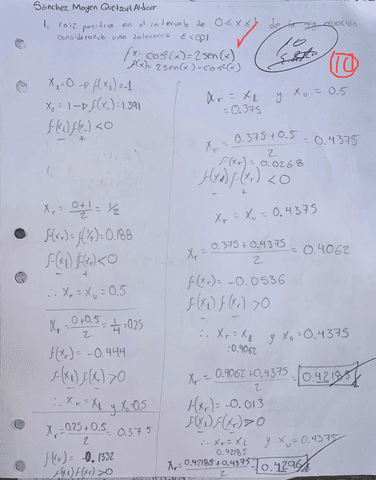 Sánchez Mayen Quetzal Aldair
1. raiz positiva en el intervalo de 0≤x≤1 de la ecuación
considerando una tolerancia ε<0.01
fx= cos²(x)=2sen(x)
f(x)=2sen(x)-cos²(x)
10
10
x_L=0 → f(x_L)=-1
x_u=1 → f(x_u)=1.391
f(x_L)f(x_u)<0
- +
x_r=(0+1)/2=1/2
f(x_r)=f(1/2)=0.188
f(x_L)f(x_r)<0
- +
∴ x_r=x_u=0.5
x_r=(0+0.5)/2=1/4=0.25
f(x_r)=-0.444
f(x_L)f(x_r)>0
- -
∴ x_r=x_L y x_u=0.5
x_r=(0.25+0.5)/2=0.375
f(x_r)=-0.1332
f(x_L)f(x_r)>0
x_r=x_L y x_u=0.5
=0.375
x_r=(0.375+0.5)/2=0.4375
f(x_r)=0.0268
f(x_L)f(x_r)<0
- +
x_r=x_u=0.4375
x_r=(0.375+0.4375)/2=0.4062
f(x_r)=-0.0536
f(x_L)f(x_r)>0
- -
∴ x_r=x_L y x_u=0.4375
=0.4062
x_r=(0.4062+0.4375)/2=0.42185
f(x_r)=-0.013
f(x_L)f(x_r)>0
- -
∴ x_r=x_L y x_u=0.4375
0.42185
x_r=(0.42185+0.4375)/2=0.4296